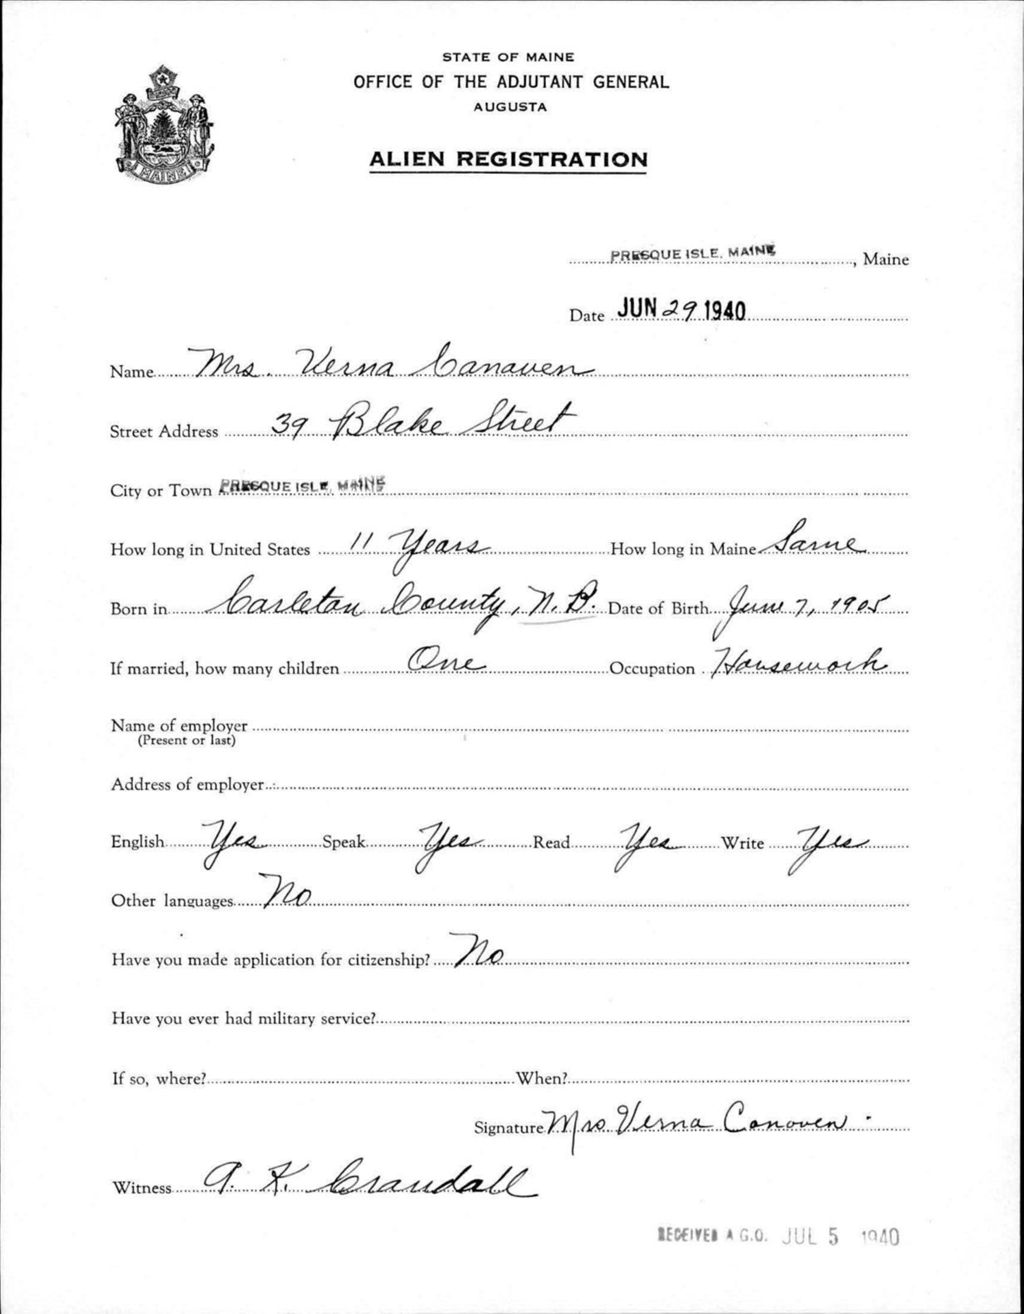 STATE OF MAINE
OFFICE OF THE ADJUTANT GENERAL
AUGUSTA
ALIEN REGISTRATION
MAINE
PRESQUE ISLE, MAINE, Maine
Date JUN 29 1940
Name Mrs. Verna Canaven
Street Address 39 Blake Street
City or Town PRESQUE ISLE, MAINE
How long in United States 11 Years How long in Maine Same
Born in Carleton County, N.B. Date of Birth June 7, 1905
If married, how many children One Occupation Housework
Name of employer
(Present or last)
Address of employer
English Yes Speak Yes Read Yes Write Yes
Other languages No
Have you made application for citizenship? No
Have you ever had military service?
If so, where? When?
Signature Mrs Verna Conoven
Witness A. K. Crandall
RECEIVED A.G.O. JUL 5 1940